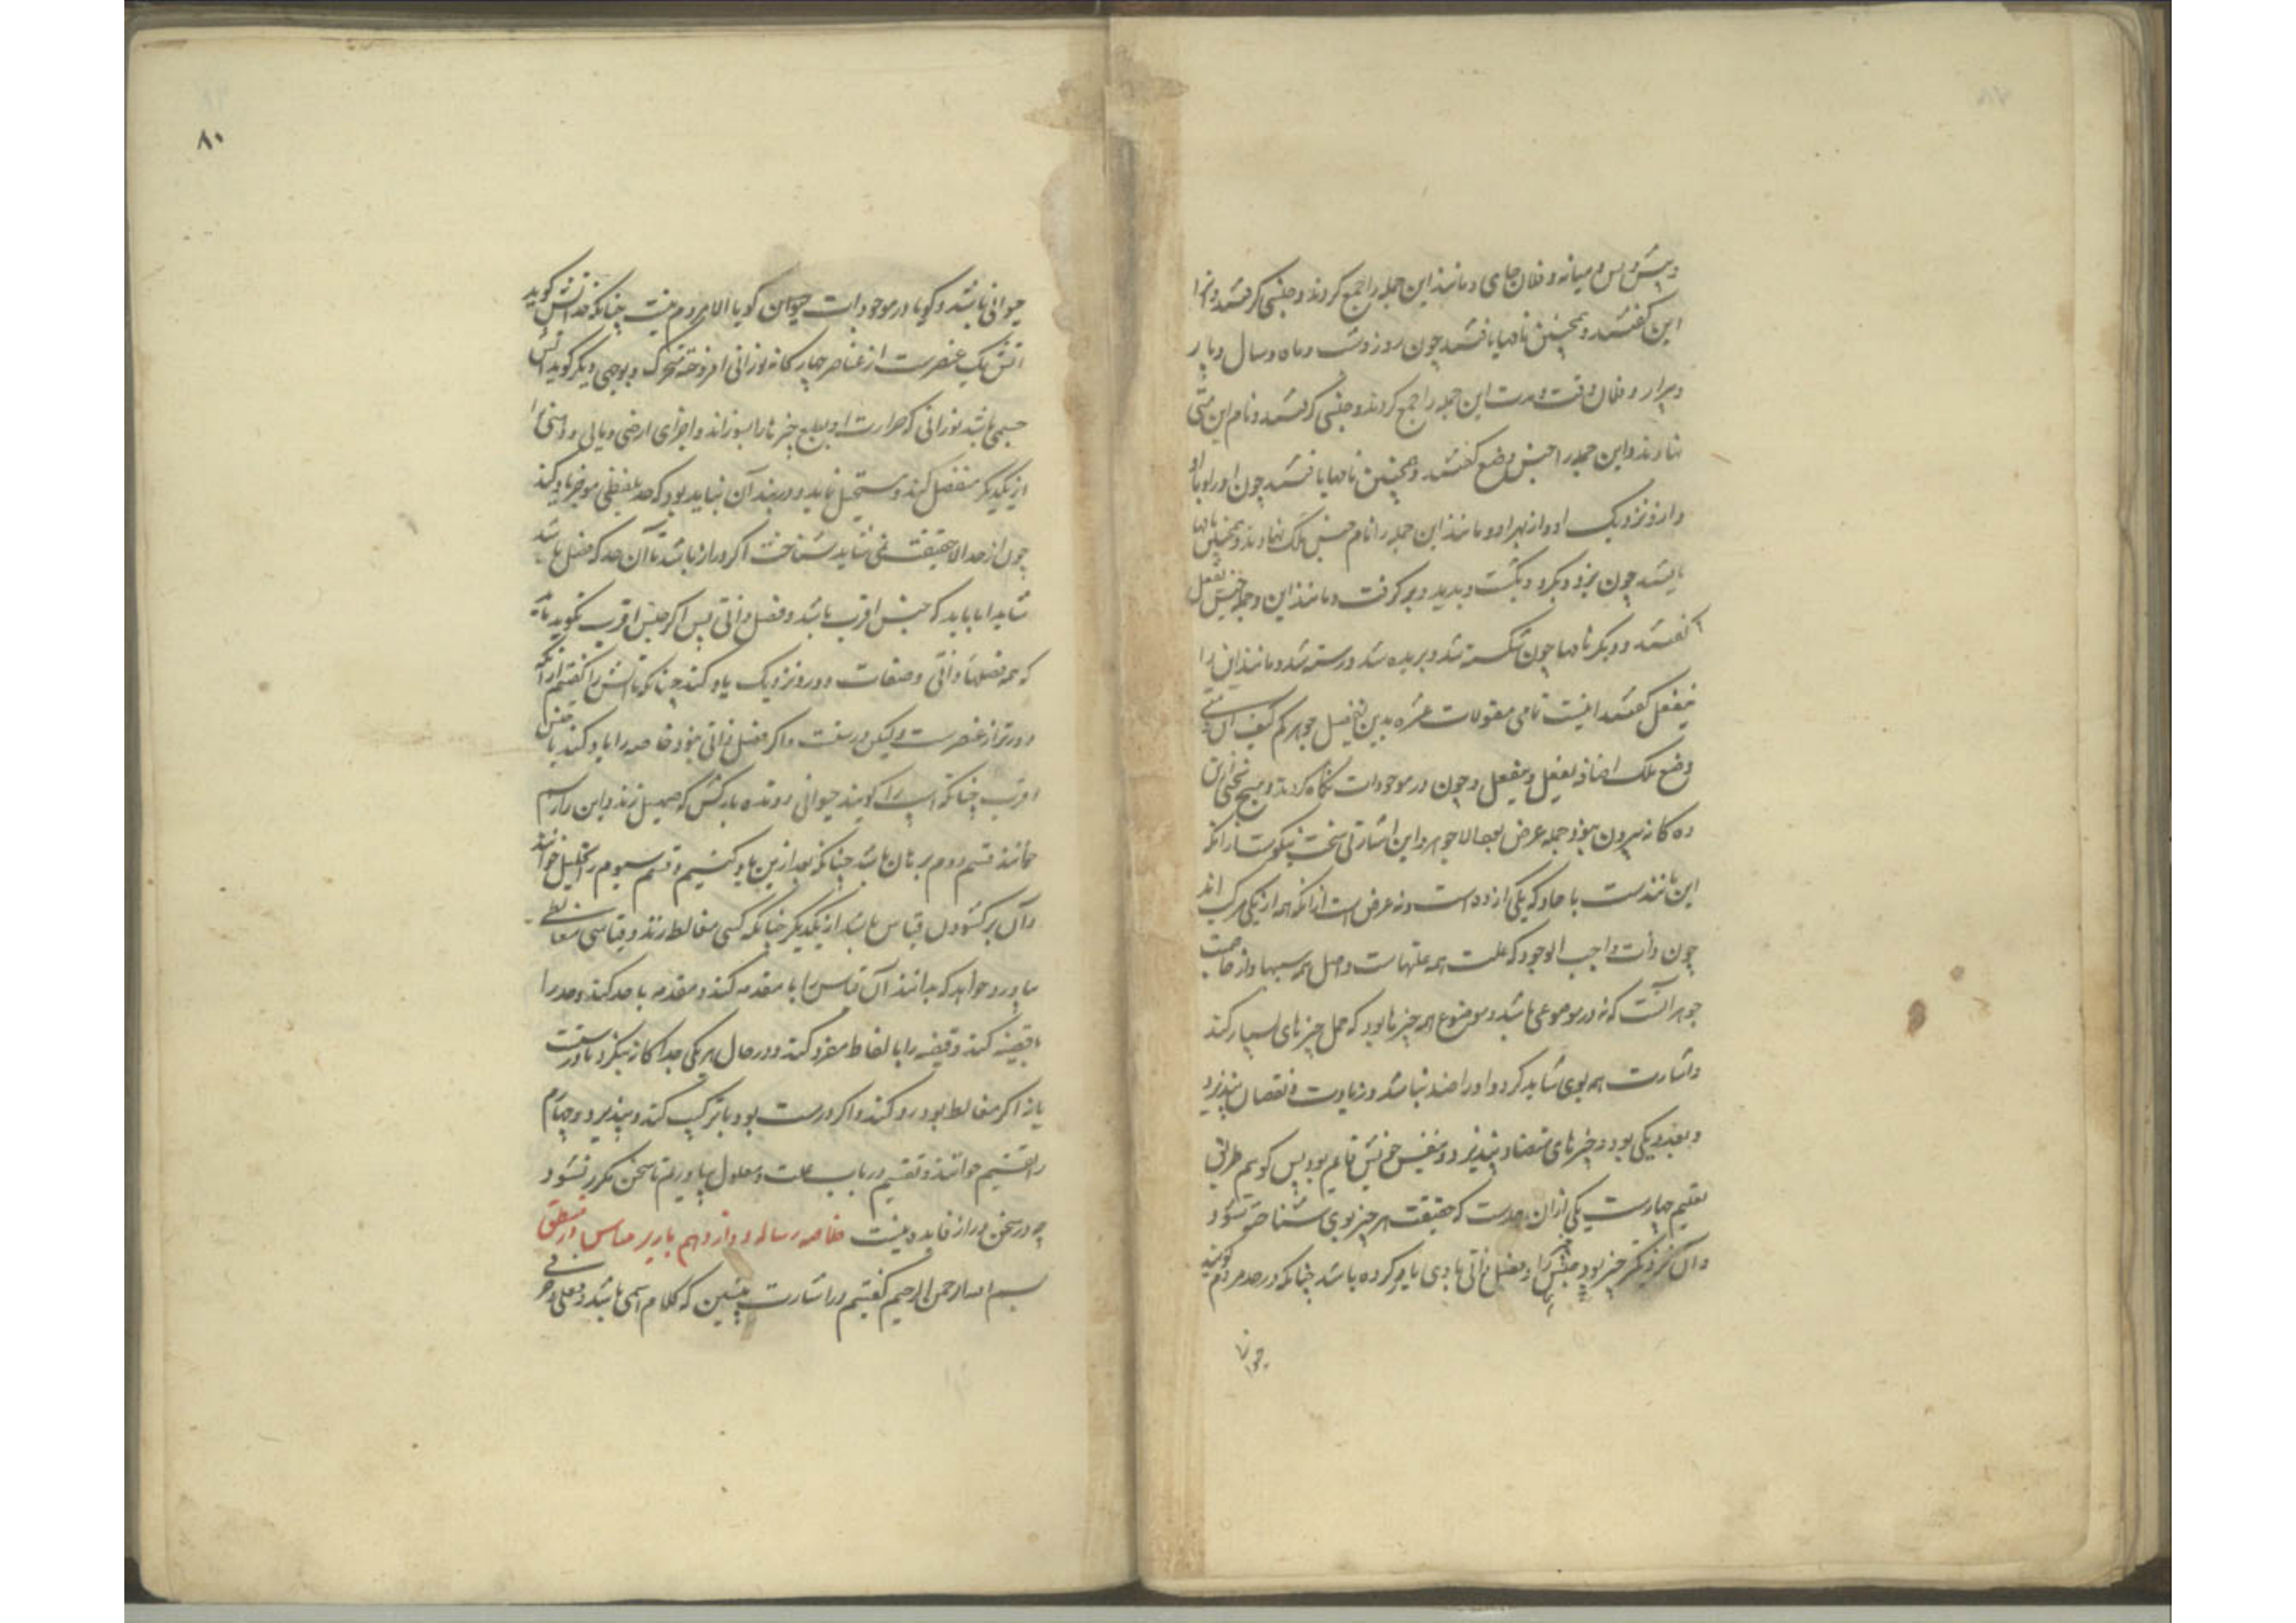 و پیش و پس و میانه و فلان جای و مانند این جمله را جمع کردند و جنسی گرفتند و آنرا
این گفتند و همچنین نامها یافتند چون روز و شب و ماه و سال و پار
و پرار و فلان وقت و مدت این جمله را جمع کردند و جنسی گرفتند و نام این متی
نهادند و این جمله را جنس وضع گفتند و همچنین نامها یافتند چون او را و با او
و از و نزدیک او و از بهر او و مانند این جمله را نام جنس ملک نهادند و همچنین نامها
یافتند چون بزد و بکرد و بکشت و برید و برگرفت و مانند این و جمله جنس یفعل
گفتند و دیگر نامها چون شکسته شد و بریده شد و رسته شد و مانند این را
ینفعل گفتند اینست نامی مقولات عشره بدین تفصیل جوهر کم کیف این متی
وضع ملک اضافه یفعل و ینفعل و چون در موجودات نگاه کردند و هیچ سخنی ازین
ده گانه بیرون نبود و جمله عرض بود الا جوهر و این اشارتی سخت نیکوست از آنکه
این مانندست با حاد که یکی از ده است و نه عرض است از آنکه همه از یکی مرکب اند
چون ذات واجب الوجود که علت همه علتهاست و اصل همه سببها و از خاصیت
جوهر آنست که نه در موضوعی باشد و موضوع همه چیزها بود که حمل چیزهای بسیار کند
و اشارت هم بوی شاید کرد و او را ضد نباشد و زیادت و نقصان نپذیرد
و بعدد یکی بود و چیزهای متضاد بپذیرد و بنفس خویش قایم بود پس گوییم طریق
تعلیم چهارست یکی ازان حدست که حقیقت هر چیز بوی شناخته شود
و آن نزدیکتر چیز بود جنس را و فصل ذاتی با وی یاد کرده باشد چنانکه در حد مردم گویند
حیوانی
۸۰
حیوانی باشد و گویا در موجودات حیوان گویا الا مردم نیست چنانکه حد آتش گوید
آتش یک عنصرست از عناصر چهارگانه نورانی افروخته متحرک و بوجهی دیگر گوید آتش
جسمی باشد نورانی که حرارت او بطبع چیزها را بسوزاند و اجزای ارضی و مایی و دهنی را
از یکدیگر منفصل کند و مستحیل نماید و در بند آن نباید بود که حد بلفظی موجز یاد کند
چون از حد الا حقیقت نمی شاید شناخت اگر دراز باشد تا آن حد که فصل باشد
شاید اما باید که جنس اقرب باشد و فصل ذاتی پس اگر جنس اقرب نگوید باید
که همه فصلها ذاتی و صفات دور و نزدیک یاد کند چنانکه آتش را گفتیم از آنکه
دورتر از عنصرست ولیکن درست و اگر فصل ذاتی نبود خاصه را یاد کند با جنس
اقرب چنانکه اسب را گویند حیوانی رونده بارکش که صهیل زند و این را رسم
خوانند قسم دوم برهان باشد چنانکه بعد ازین یاد کنیم و قسم سیوم را تحلیل خوانند
و آن برگشودن قیاس باشد از یکدیگر چنانکه کسی مغالطه زند و قیاسی مغالطی
بیاورد و خواهد که بدانند آن قیاس را با مقدمه کند و مقدمه با حد کند و حد را
با قضیه کند و قضیه را با الفاظ مفرد کند و در حال هر یکی جداگانه بنگرد تا درست
یا نه اگر مغالط بود رد کند و اگر درست بود با ترکیب کند و بپذیرد و چهارم
را تقسیم خوانند و تقسیم در باب علت و معلول بیاوریم تا سخن مکرر نشود
چه در سخن دراز فایده نیست خلاصه رساله دوازدهم باریرمیناس از منطق
بسم الله الرحمن الرحیم گفتیم در اشارت پیشین که کلام اسمی باشد و فعلی و حرفی